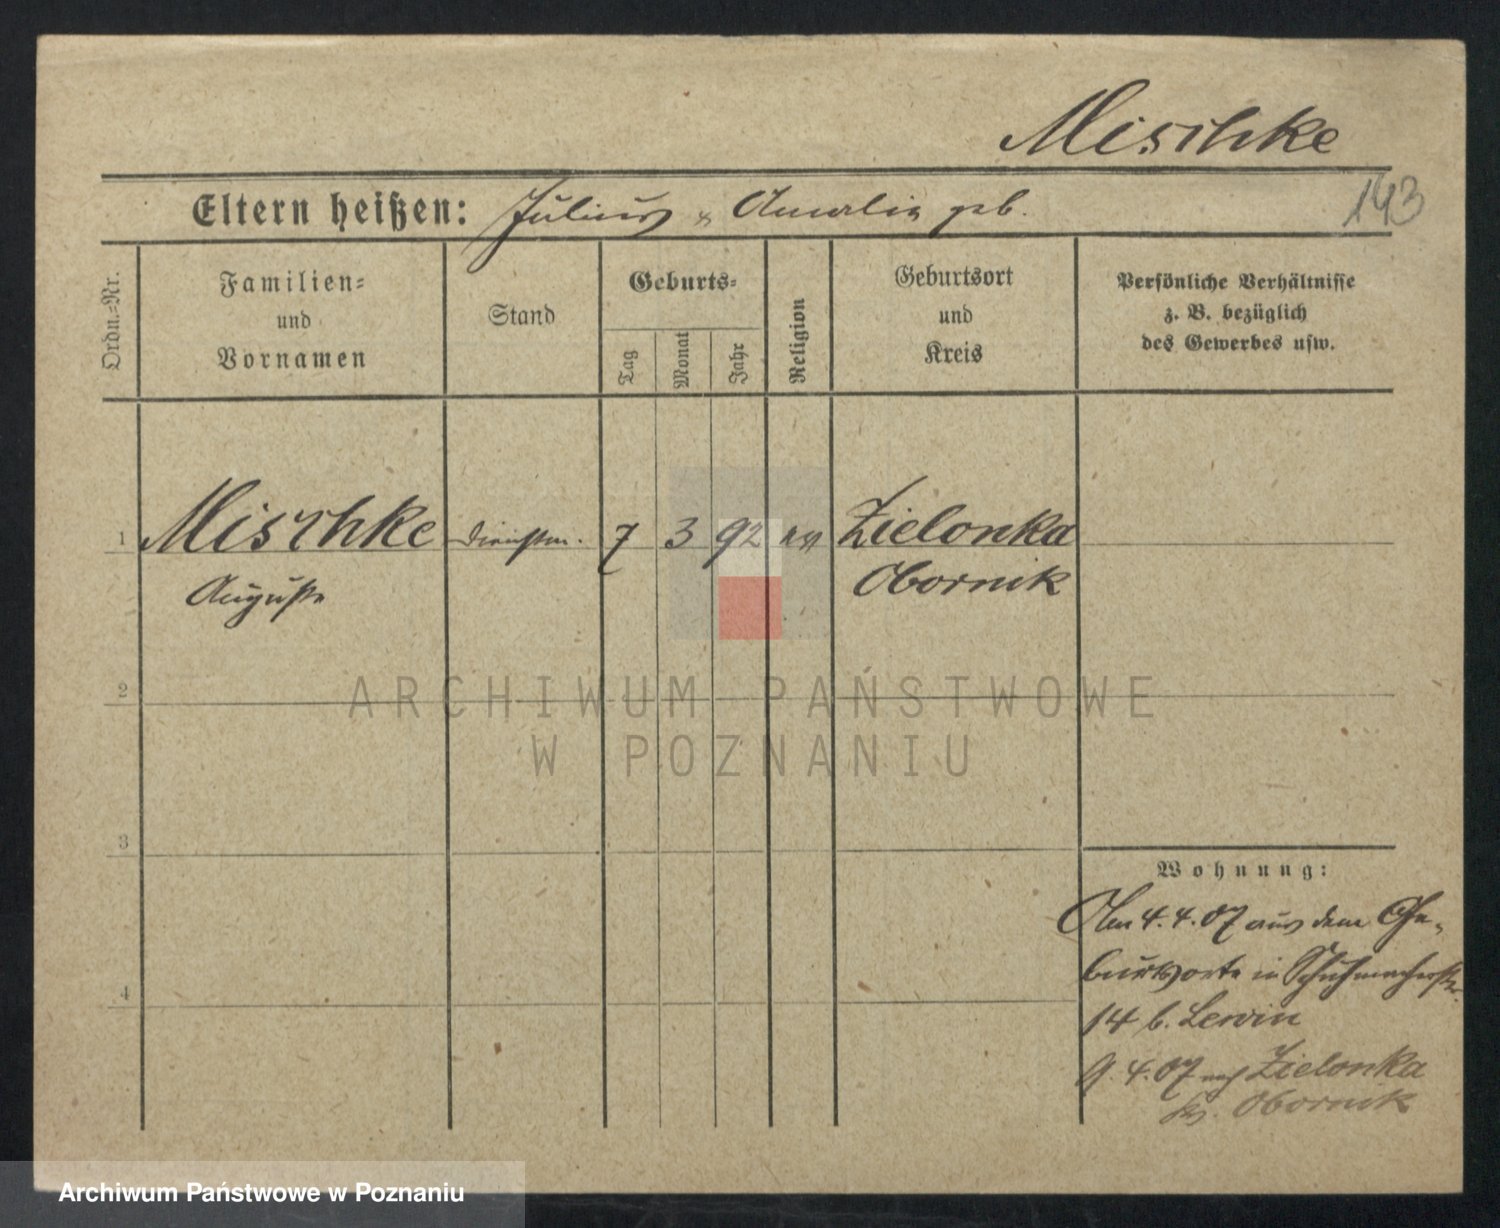 Mischke
143
Eltern heißen: Julius & Amalie geb.
Ordn.-Nr.
Familien- und Vornamen
Stand
Geburts-
Tag
Monat
Jahr
Religion
Geburtsort und Kreis
Persönliche Verhältnisse
z. B. bezüglich
des Gewerbes usw.
1 Mischke Dienstm. 7 3 92 ev Zielonka
Auguste Obornik
2
3
4
Wohnung:
Am 4.4.07 aus dem Ge-
burtsorte in Schuhmacherstr.
14 b. Lewin
9.4.07 nach Zielonka
Kr. Obornik
ARCHIWUM PAŃSTWOWE
W POZNANIU
Archiwum Państwowe w Poznaniu